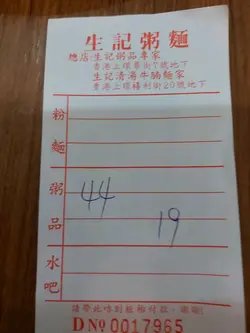 生記粥麵
總店:生記粥品專家
香港上環畢街7號地下
生記清湯牛腩麵家
香港上環禧利街20號地下
粉
麵
粥
品
水
吧
44
19
請帶此咭到柜枱付款,謝謝!
D No 0017965